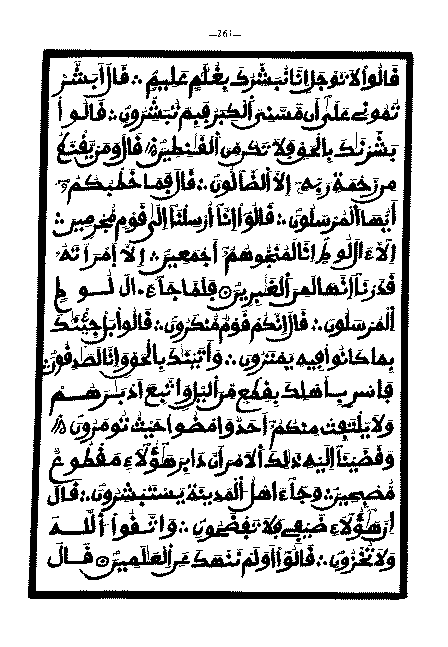 —261—
قَالُوا۟ لَا تَوْجَلِ انَّا نُبَشِّرُكَ بِغُلَٰمٍ عَلِيمٍ ؞ قَالَ أَبَشَّرْ
تُمُونِے عَلَىٰ أَن مَّسَّنِىَ ٱلْكِبَرُ فَبِمَ تُبَشِّرُونِ ؞ قَالُوا
بَشَّرْنَٰكَ بِالْحَقِّ فَلَا تَكُن مِّنَ ٱلْقَٰنِطِينَ قَالَ وَمَنْ يَّقْنَطُ
مِن رَّحْمَةِ رَبِّهِۦٓ إِلَّا ٱلضَّآلُّونَ ؞ قَالَ فَمَا خَطْبُكُمُۥٓ
أَيُّهَا ٱلْمُرْسَلُونَ ؞ قَالُوٓا۟ إِنَّآ أُرْسِلْنَآ إِلَىٰ قَوْمٍ مُّجْرِمِينَ ؞
إِلَّآ ءَالَ لُوطٍ انَّا لَمُنَجُّوهُمُۥٓ أَجْمَعِينَ ؞ إِلَّا ٱمْرَأَتَهُۥ
قَدَّرْنَآ إِنَّهَا لَمِنَ ٱلْغَٰبِرِينَ ۝ فَلَمَّا جَآءَ الَ لُوطٍ
ٱلْمُرْسَلُونَ ؞ قَالَ إِنَّكُمْ قَوْمٌ مُّنكَرُونَ ؞ قَالُوا۟ بَلْ جِئْنَٰكَ
بِمَا كَانُوا۟ فِيهِ يَمْتَرُونَ ؞ وَأَتَيْنَٰكَ بِالْحَقِّ وَإِنَّا لَصَٰدِقُونَ
فَاسْرِ بِأَهْلِكَ بِقِطْعٍ مِّنَ ٱلَّيْلِ وَاتَّبِعَ اَدْبَٰرَهُمْ
وَلَا يَلْتَفِتْ مِنكُمُۥٓ أَحَدٌ وَامْضُوا۟ حَيْثُ تُومَرُونَ
وَقَضَيْنَآ إِلَيْهِ ذَٰلِكَ ٱلَامْرَ أَنَّ دَابِرَ هَٰٓؤُلَآءِ مَقْطُوعٌ
مُّصْبِحِينَ ؞ وَجَآءَ اهْلُ ٱلْمَدِينَةِ يَسْتَبْشِرُونَ ؞ قَالَ
إِنَّ هَٰٓؤُلَآءِ ضَيْفِے فَلَا تَفْضَحُونِ ؞ وَاتَّقُوا۟ ٱللَّهَ
وَلَا تُخْزُونِ ؞ قَالُوٓا۟ أَوَلَمْ نَنْهَكَ عَنِ ٱلْعَٰلَمِينَ ۝ قَالَ